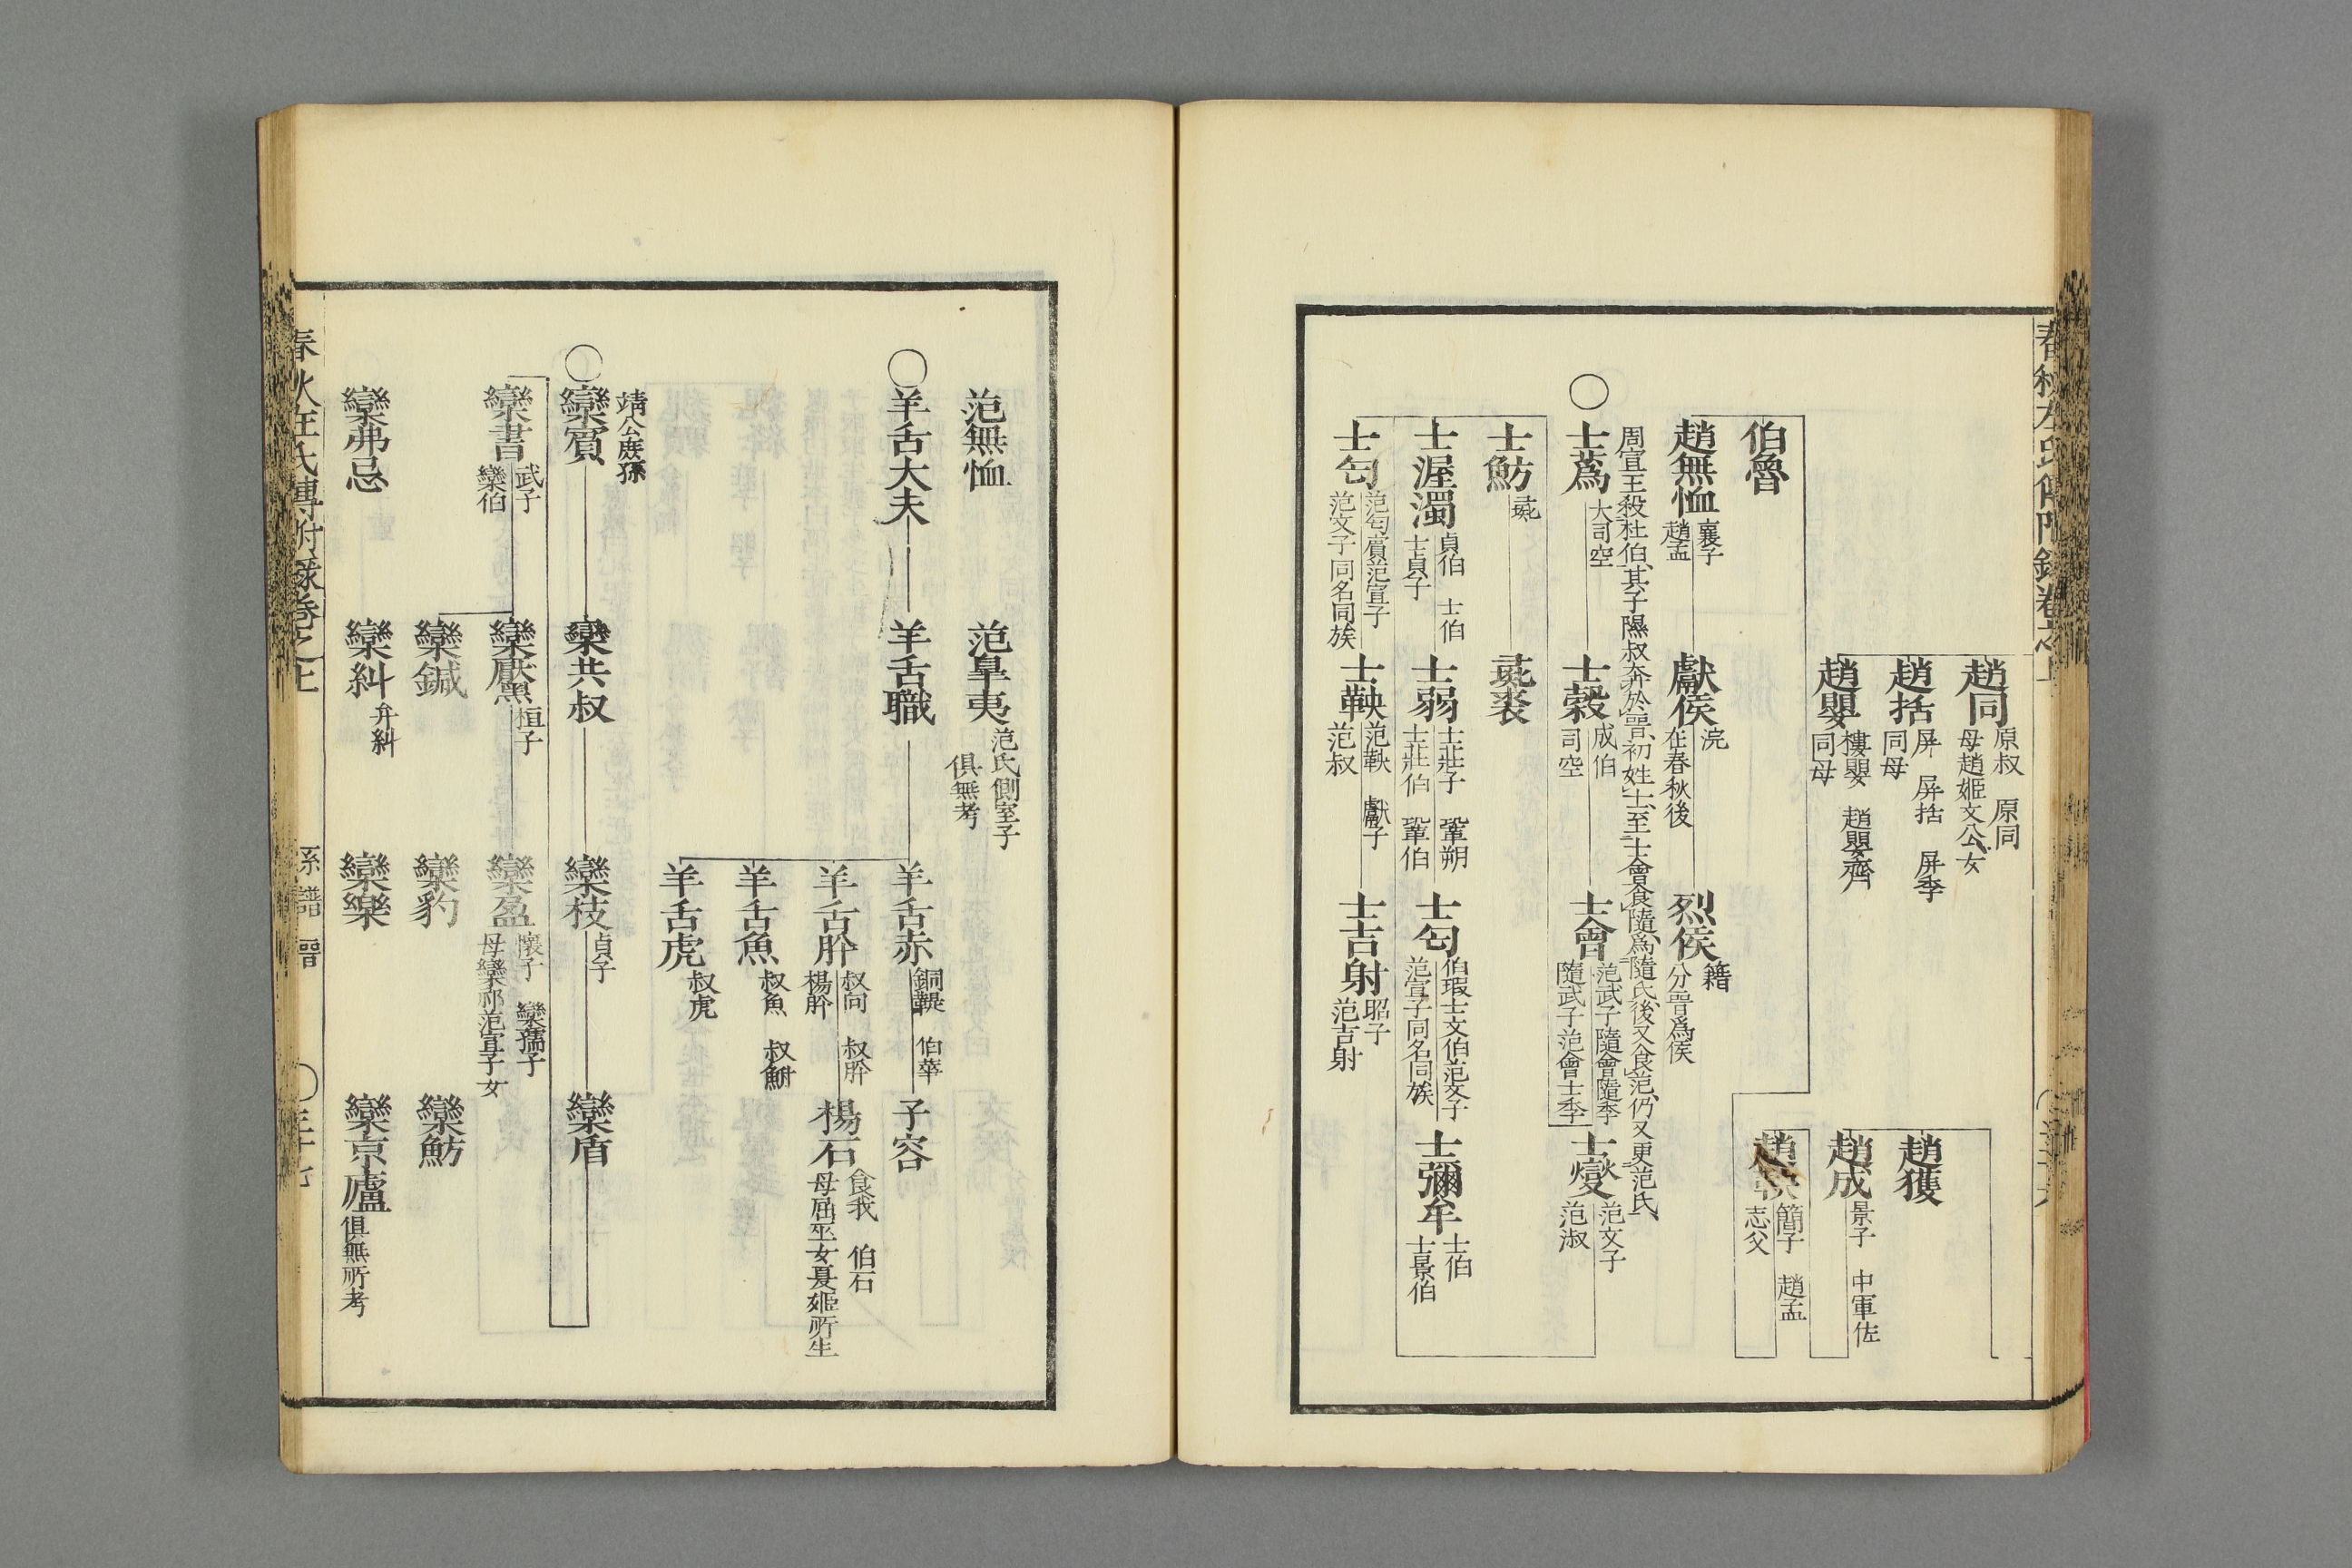 春秋左氏傳附錄卷之上
趙同 原叔 原同 母趙姬文公女
趙括 屏 屏括 屏季 同母
趙嬰 樓嬰 趙嬰齊 同母
趙獲
趙成 景子 中軍佐
簡子 趙孟 志父
伯魯
趙無恤 襄子 趙孟
獻侯 浣 在春秋後
烈侯 籍 分晉爲侯
周宣王殺杜伯其子隰叔奔於晉初姓士至士會食隨爲隨氏後又食范仍又更范氏
○士蔿 大司空
士縠 成伯 司空
士會 范武子隨會隨季 隨武子范會士季
士燮 范文子 范淑
士魴 彘
彘裘
士渥濁 貞伯 士伯 士貞子
士弱 士莊子 鞏朔 士莊伯 鞏伯
士匄 伯瑕士文伯范文子 范宣子同名同族
士彌牟 士伯 士景伯
士匄 范匄賁范宣子 范文子同名同族
士鞅 范鞅 獻子 范叔
士吉射 昭子 范吉射
范無恤
范皐夷 范氏側室子 俱無考
○羊舌大夫
羊舌職
羊舌赤 銅鞮 伯華
子容
羊舌肸 叔向 叔肸 楊肸
楊石 食我 伯石 母屈巫女夏姬所生
羊舌魚 叔魚 叔鮒
羊舌虎 叔虎
靖公庶孫
○欒賓
欒共叔
欒枝 貞子
欒盾
欒書 武子 欒伯
欒黶 桓子
欒盈 懷子 欒孺子 母欒祁范宣子女
欒鍼
欒豹
欒魴
欒弗忌
欒糾 弁糾
欒樂
欒京廬 俱無所考
春秋左氏傳附錄卷之上 系譜 晉 ○三十七